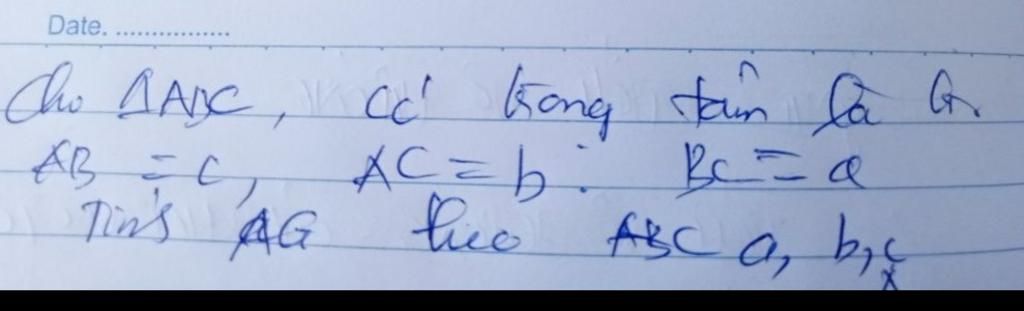 Date. ................
Cho ΔABC, có trong tâm là G.
AB = c, AC = b. BC = a
Tính AG theo ABC a, b, c